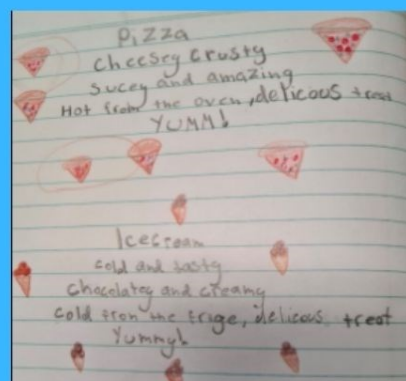 Pizza
cheesey crusty
sucey and amazing
Hot from the oven, delicous treat
YUMM!
Icecream
cold and tasty
chocolatey and creamy
cold from the frige, delicous treat
Yummy!